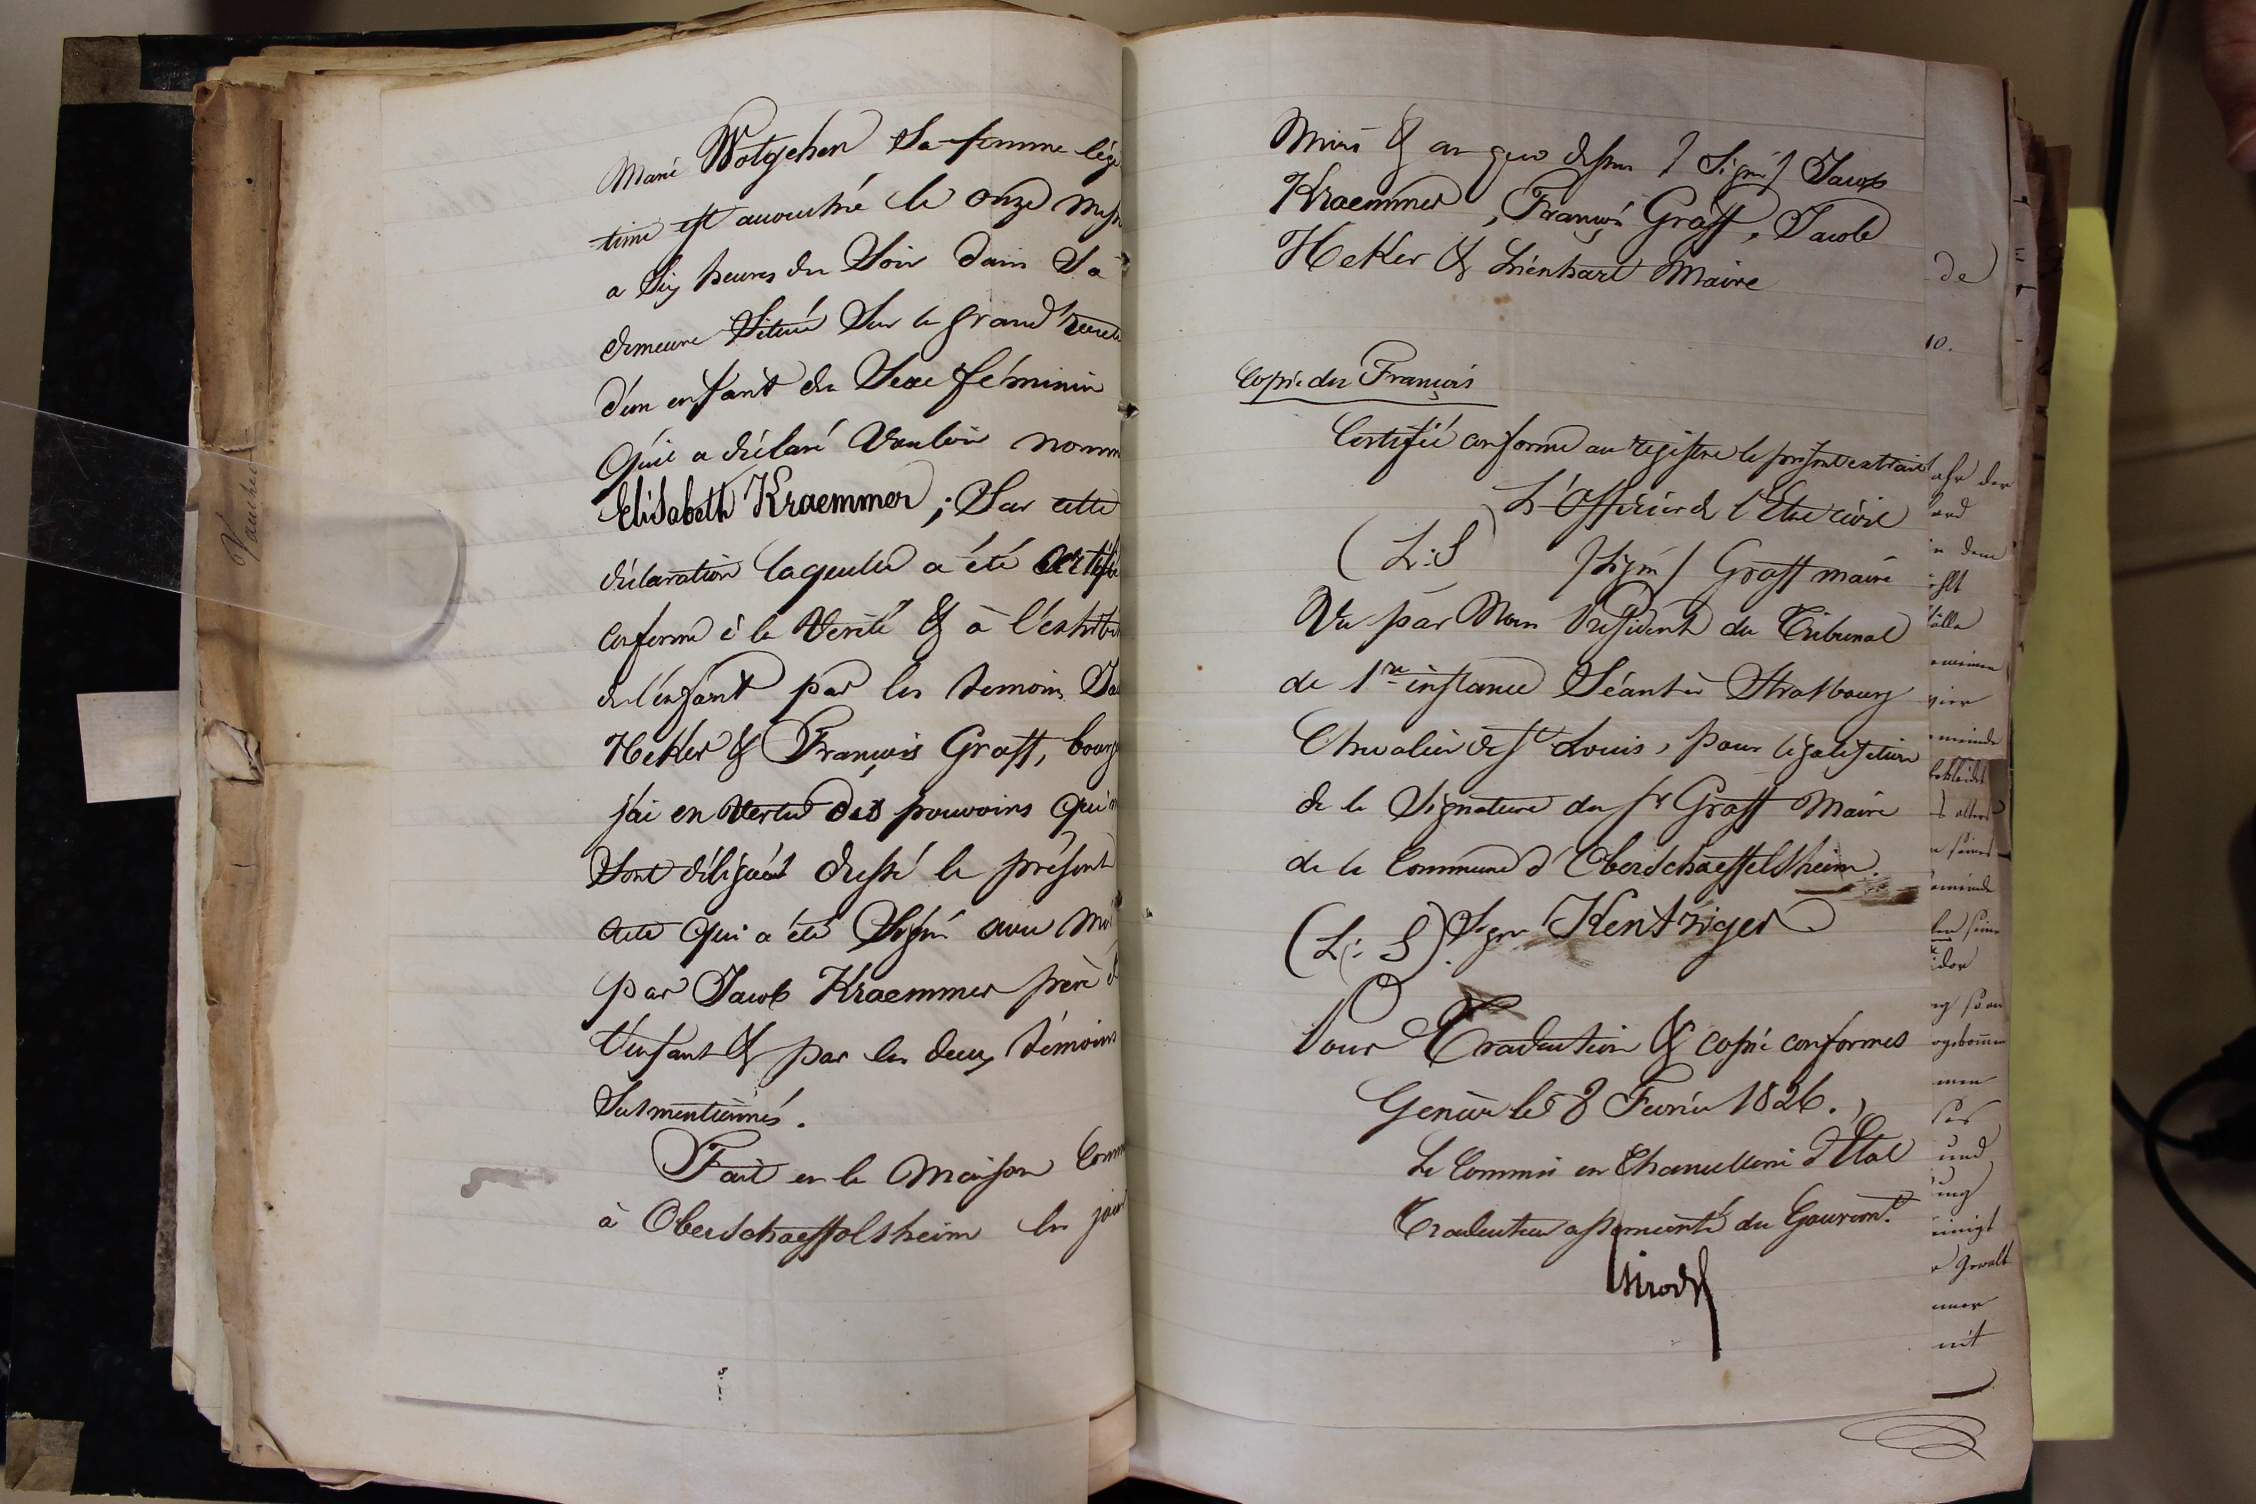 Marie Wolgehen Sa femme légi
time est accouchée le onze Mess
a Six heures du Soir dans Sa
demeure Située Sur la grand' rue
d'un enfant du Sexe féminin
Qu'il a déclaré Vouloir nomm
Elisabeth Kraemmer ; Sur cette
déclaration laquelle a été certifié
conforme à la Verité & à l'exhibi
de l'enfant par les temoins Ja
Heker & François Graff, bourg
j'ai en vertu des pouvoirs qui m
Sont délégués dressé le présent
acte qui a été Signé avec Moi
par Jacob Kraemmer père d
l'enfant & par les deux témoins
Susmentionnés.
Fait en la Maison Comm
à Oberschaeffolsheim les jour
Mois & an que dessus / Signé / Jacob
Kraemmer, François Graff, Jacob
Heker & Liénhart Maire
Copie du François
Certifié conforme au registre le présent extrait
L'Officier de l'Etat civil
(L: S) /Signé/ Graff maire
Vu par Nous Président du Tribunal
de 1re instance Séant à Strasbourg
Chevalier de St Louis, pour légalisation
de la Signature du Sr Graff Maire
de la Commune d'Oberschaeffelsheim.
(L: S). Signé Kentziger
Pour Traduction & copie conformes
Genève le 8 Fevrier 1826.
Le Commis en Chancellerie d'Etat
Traducteur assermenté du Gouvernt.
de
10.
ahr der
und
in dem
hlt
vier
meinde
bekleidet
alters
seines
meinde
seine
idor
men
ses
und
ung
einigt
Gewalt
mer
mit
Vaucher